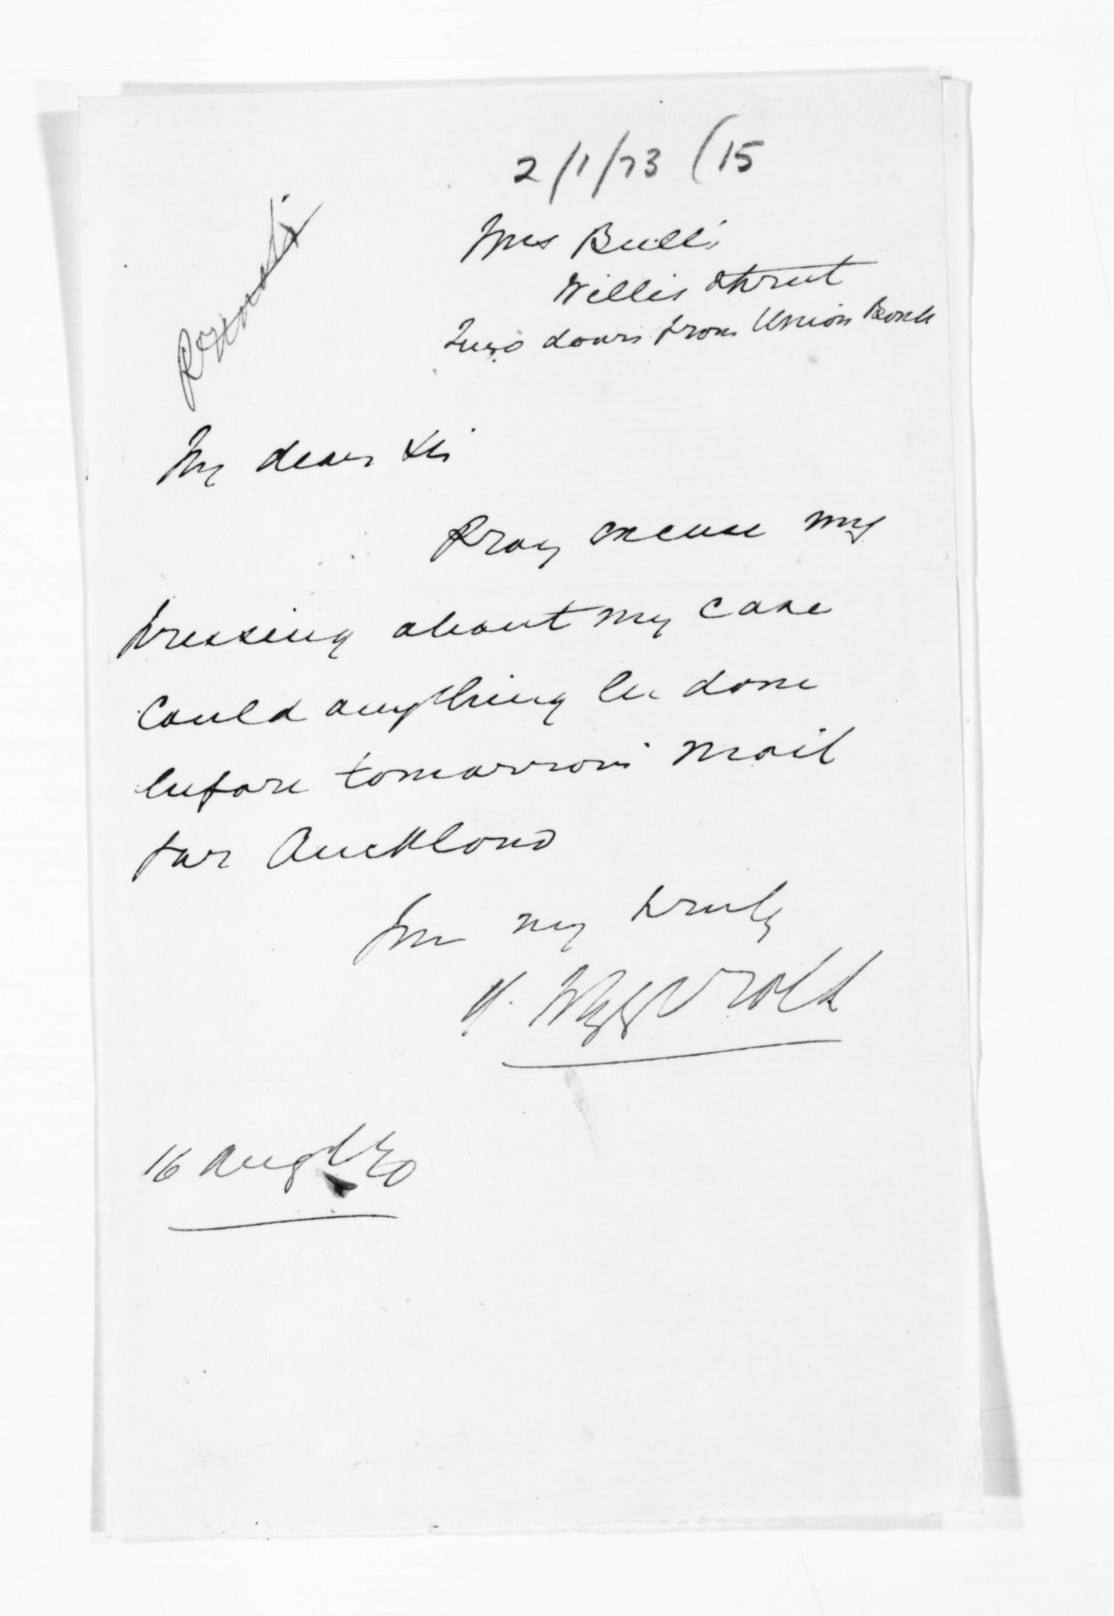 2/1/73 (15
Mrs Bull's
Willis Street
Two doors from Union Bank
My dear Sir
Pray excuse my
pressing about my case
Could anything be done
before tomorrow's mail
for Auckland
I'm very truly
H.
16 Augt 70